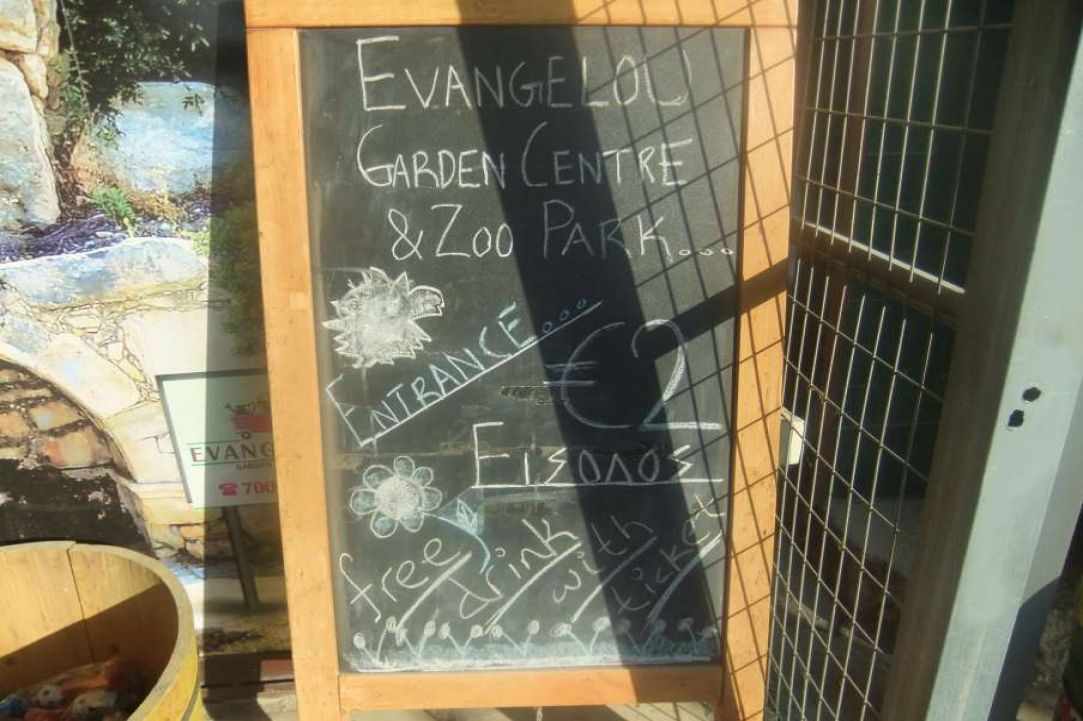 EVANGELOU
GARDEN CENTRE
& ZOO PARK...
ENTRANCE...
€2
ΕΙΣΟΔΟΣ
free drink with ticket
EVANG
GARDEN
☎ 700